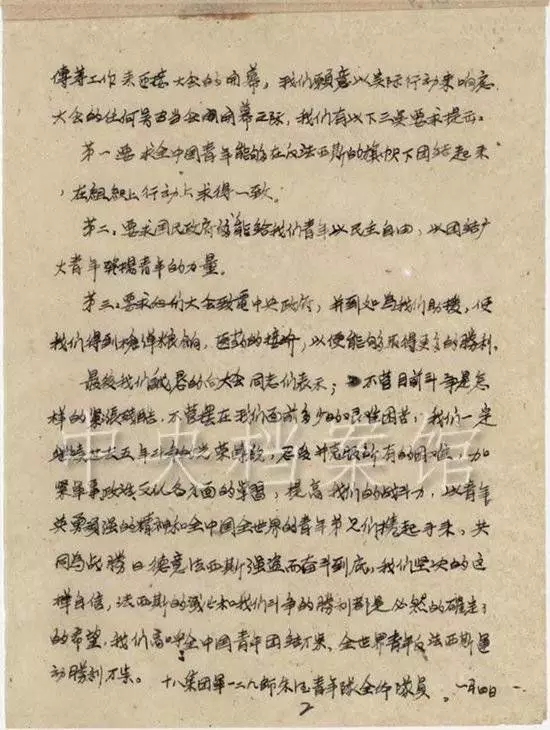 工作来迎接大会的开幕，我们愿意以实际行动来响应
大会的任何号召当会开幕之际，我们有以下三点要求提出：
第一要求全中国青年能够在反法西斯的旗帜下团结起来
，在组织上行动上求得一致。
第二：要求国民政府能给我们青年以民主自由，以团结广
大青年发扬青年的力量。
第三：要求大会致电中央政府，并到处为我们助援，使
我们得到枪弹粮饷，医药的接济，以便能够取得更多的勝利。
最後我们的向大会同志们表示：不管目前斗争是怎
样的紧張残酷，不管摆在我们面前多少的艰难困苦，我们一定
继续五年斗争的光荣傳統，忍受并克服所有的困难，加
紧軍事政治文化各方面的学習，提高我们的战斗力，以青年
英勇頑强的精神和全中国全世界的青年弟兄们携起手来，共
同為战勝日德意法西斯强盗而奋斗到底，我们坚决的这
样自信，法西斯的灭亡和我们斗争的勝利都是必然的確定了
的希望，我们高呼全中国青年团结万岁。全世界青年反法西斯运
动勝利万岁。十八集团軍一二九师青年隊全体隊員。一月四日
2
中央档案馆